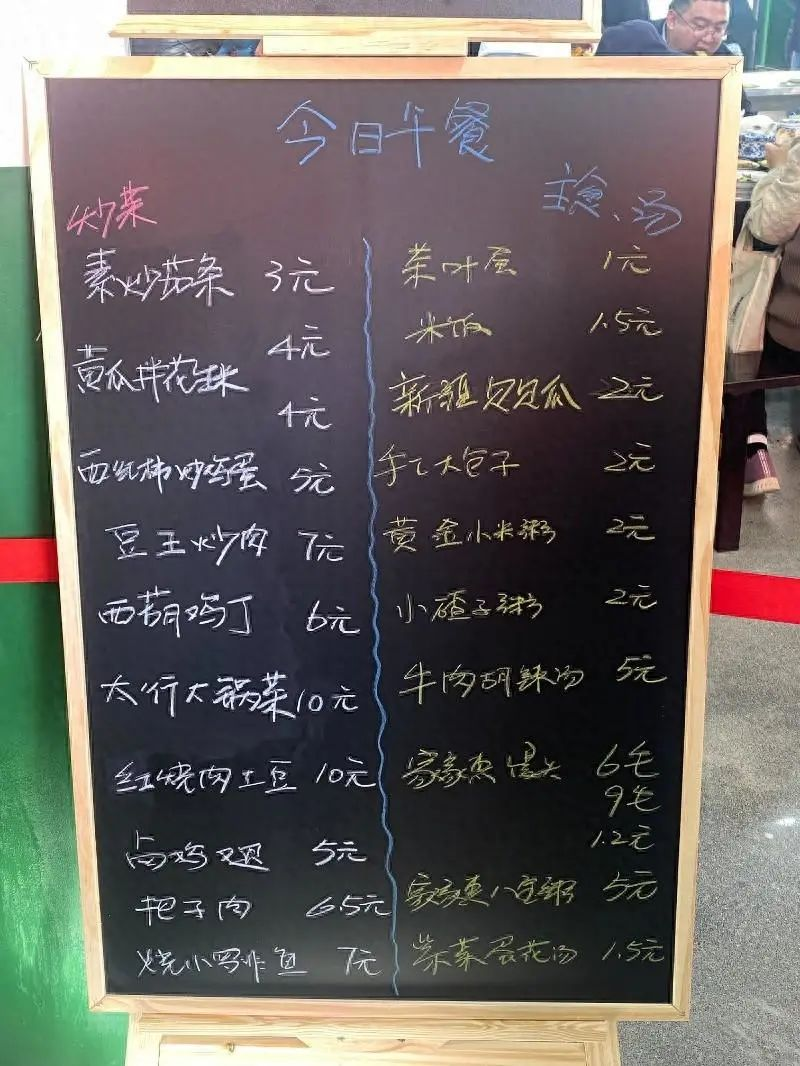 今日午餐
炒菜
素炒茄条 3元
4元
黄瓜拌花生米
4元
西红柿炒鸡蛋 5元
豆王炒肉 7元
西葫鸡丁 6元
太行大锅菜 10元
红烧肉土豆 10元
卤鸡翅 5元
把子肉 6.5元
烧小罗非鱼 7元
主食、汤
茶叶蛋 1元
米饭 1.5元
新疆贝贝瓜 2元
手工大包子 2元
黄金小米粥 2元
小碴子粥 2元
牛肉胡辣汤 5元
家家惠馒头 6毛
9毛
1.2元
八宝粥 5元
紫菜蛋花汤 1.5元